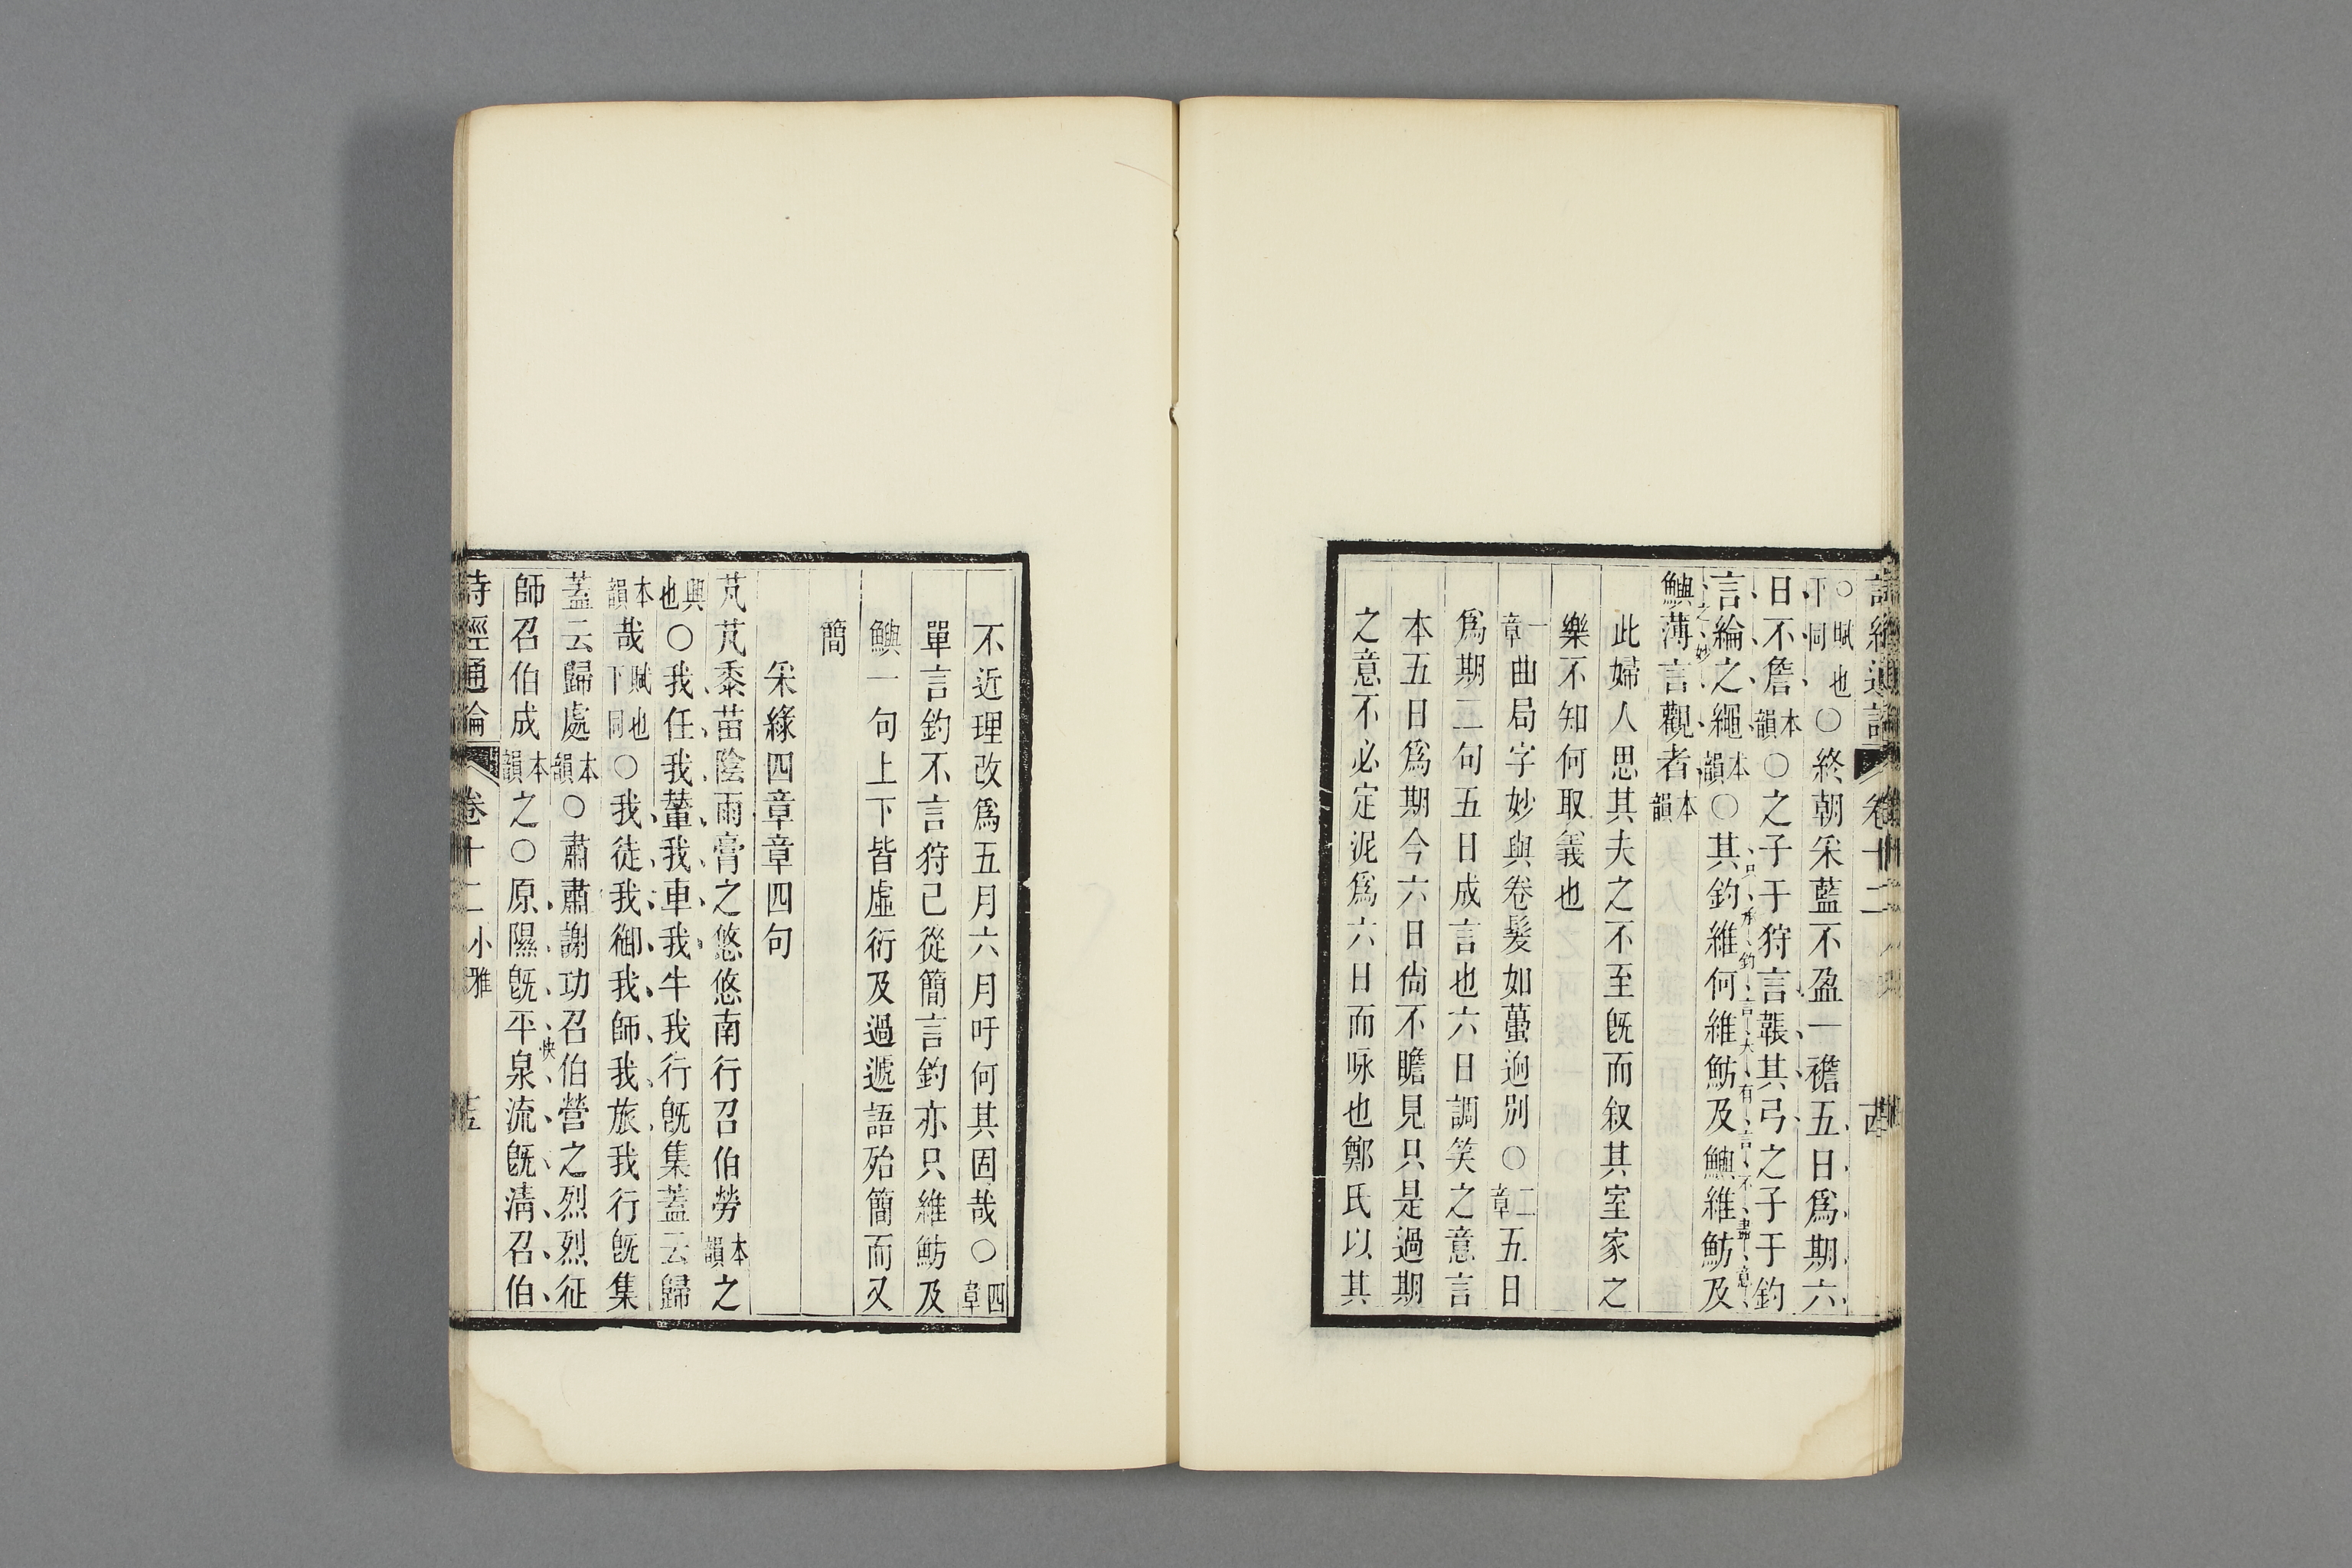 詩經通論 卷十二
○賦也下同○終朝采藍不盈一襜五日爲期六
日不詹本韻○之子于狩言韔其弓之子于釣
言綸之繩本韻○其釣維何維魴及鱮維魴及
只承釣言大有言不盡意
鱮薄言觀者本韻
之妙
此婦人思其夫之不至旣而叙其室家之
樂不知何取義也
一章曲局字妙與卷髮如蠆迥別○二章五日
爲期二句五日成言也六日調笑之意言
本五日爲期今六日尙不瞻見只是過期
之意不必定泥爲六日而咏也鄭氏以其
不近理改爲五月六月吁何其固哉○四章
單言釣不言狩已從簡言釣亦只維魴及
鱮一句上下皆虛衍及過遞語殆簡而又
簡
采綠四章章四句
芃芃黍苗陰雨膏之悠悠南行召伯勞本韻之
興也○我任我輦我車我牛我行旣集蓋云歸
本韻哉賦也下同○我徒我御我師我旅我行旣集
蓋云歸處本韻○肅肅謝功召伯營之烈烈征
師召伯成本韻之○原隰旣平泉流旣淸召伯
快
詩經通論 卷十二 小雅